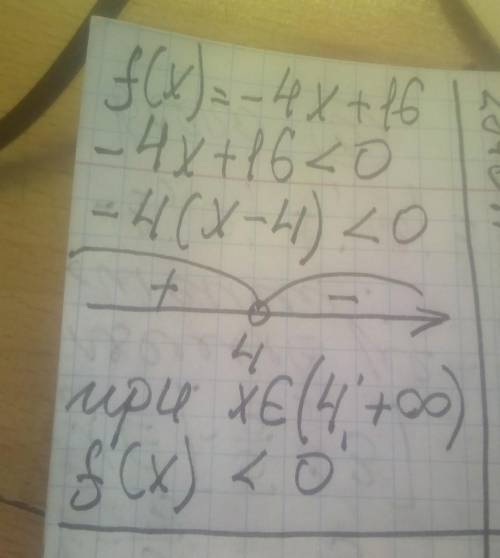 f(x)=-4x+16
-4x+16<0
-4(x-4)<0
+ -
4
при x∈(4,+∞)
f(x) < 0